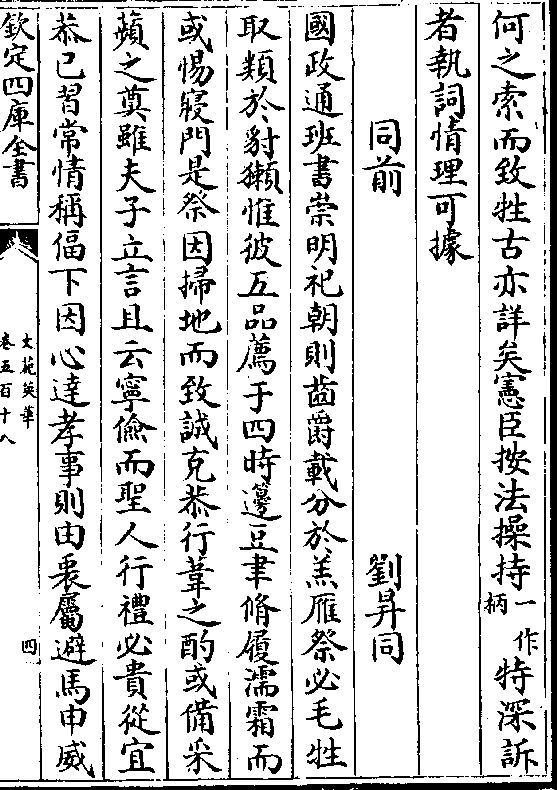 何之索而致牲古亦詳矣憲臣按法操持一作柄特深訴
者執詞情理可據
同前 劉昇同
國政通班書崇明祀朝則齒爵載分於羔雁祭必毛牲
取類於豺獺惟彼五品薦于四時籩豆聿脩履濡霜而
或惕寢門是祭因掃地而致誠克恭行葦之酌或備采
蘋之奠雖夫子立言且云寧儉而聖人行禮必貴從宜
恭已習常情稱偪下因心達孝事則由衷屬避馬申威
欽定四庫全書
文苑英華
卷五百十八
四